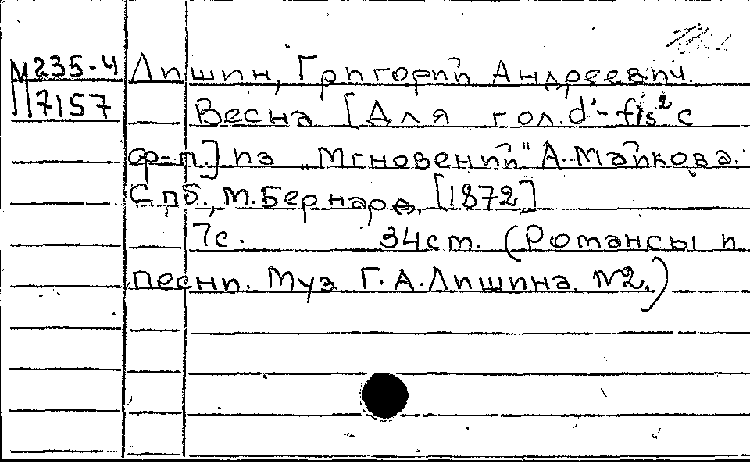 М235-4 Лишин, Григорий Андреевич.
П7157 Весна [Для гол. d'-fis² с
ф-п.] из „Мгновений" А. Майкова.
Спб., М. Бернард, [1872]
7с. 34см. (Романсы и
песни. Муз Г.А. Лишина. №2.)